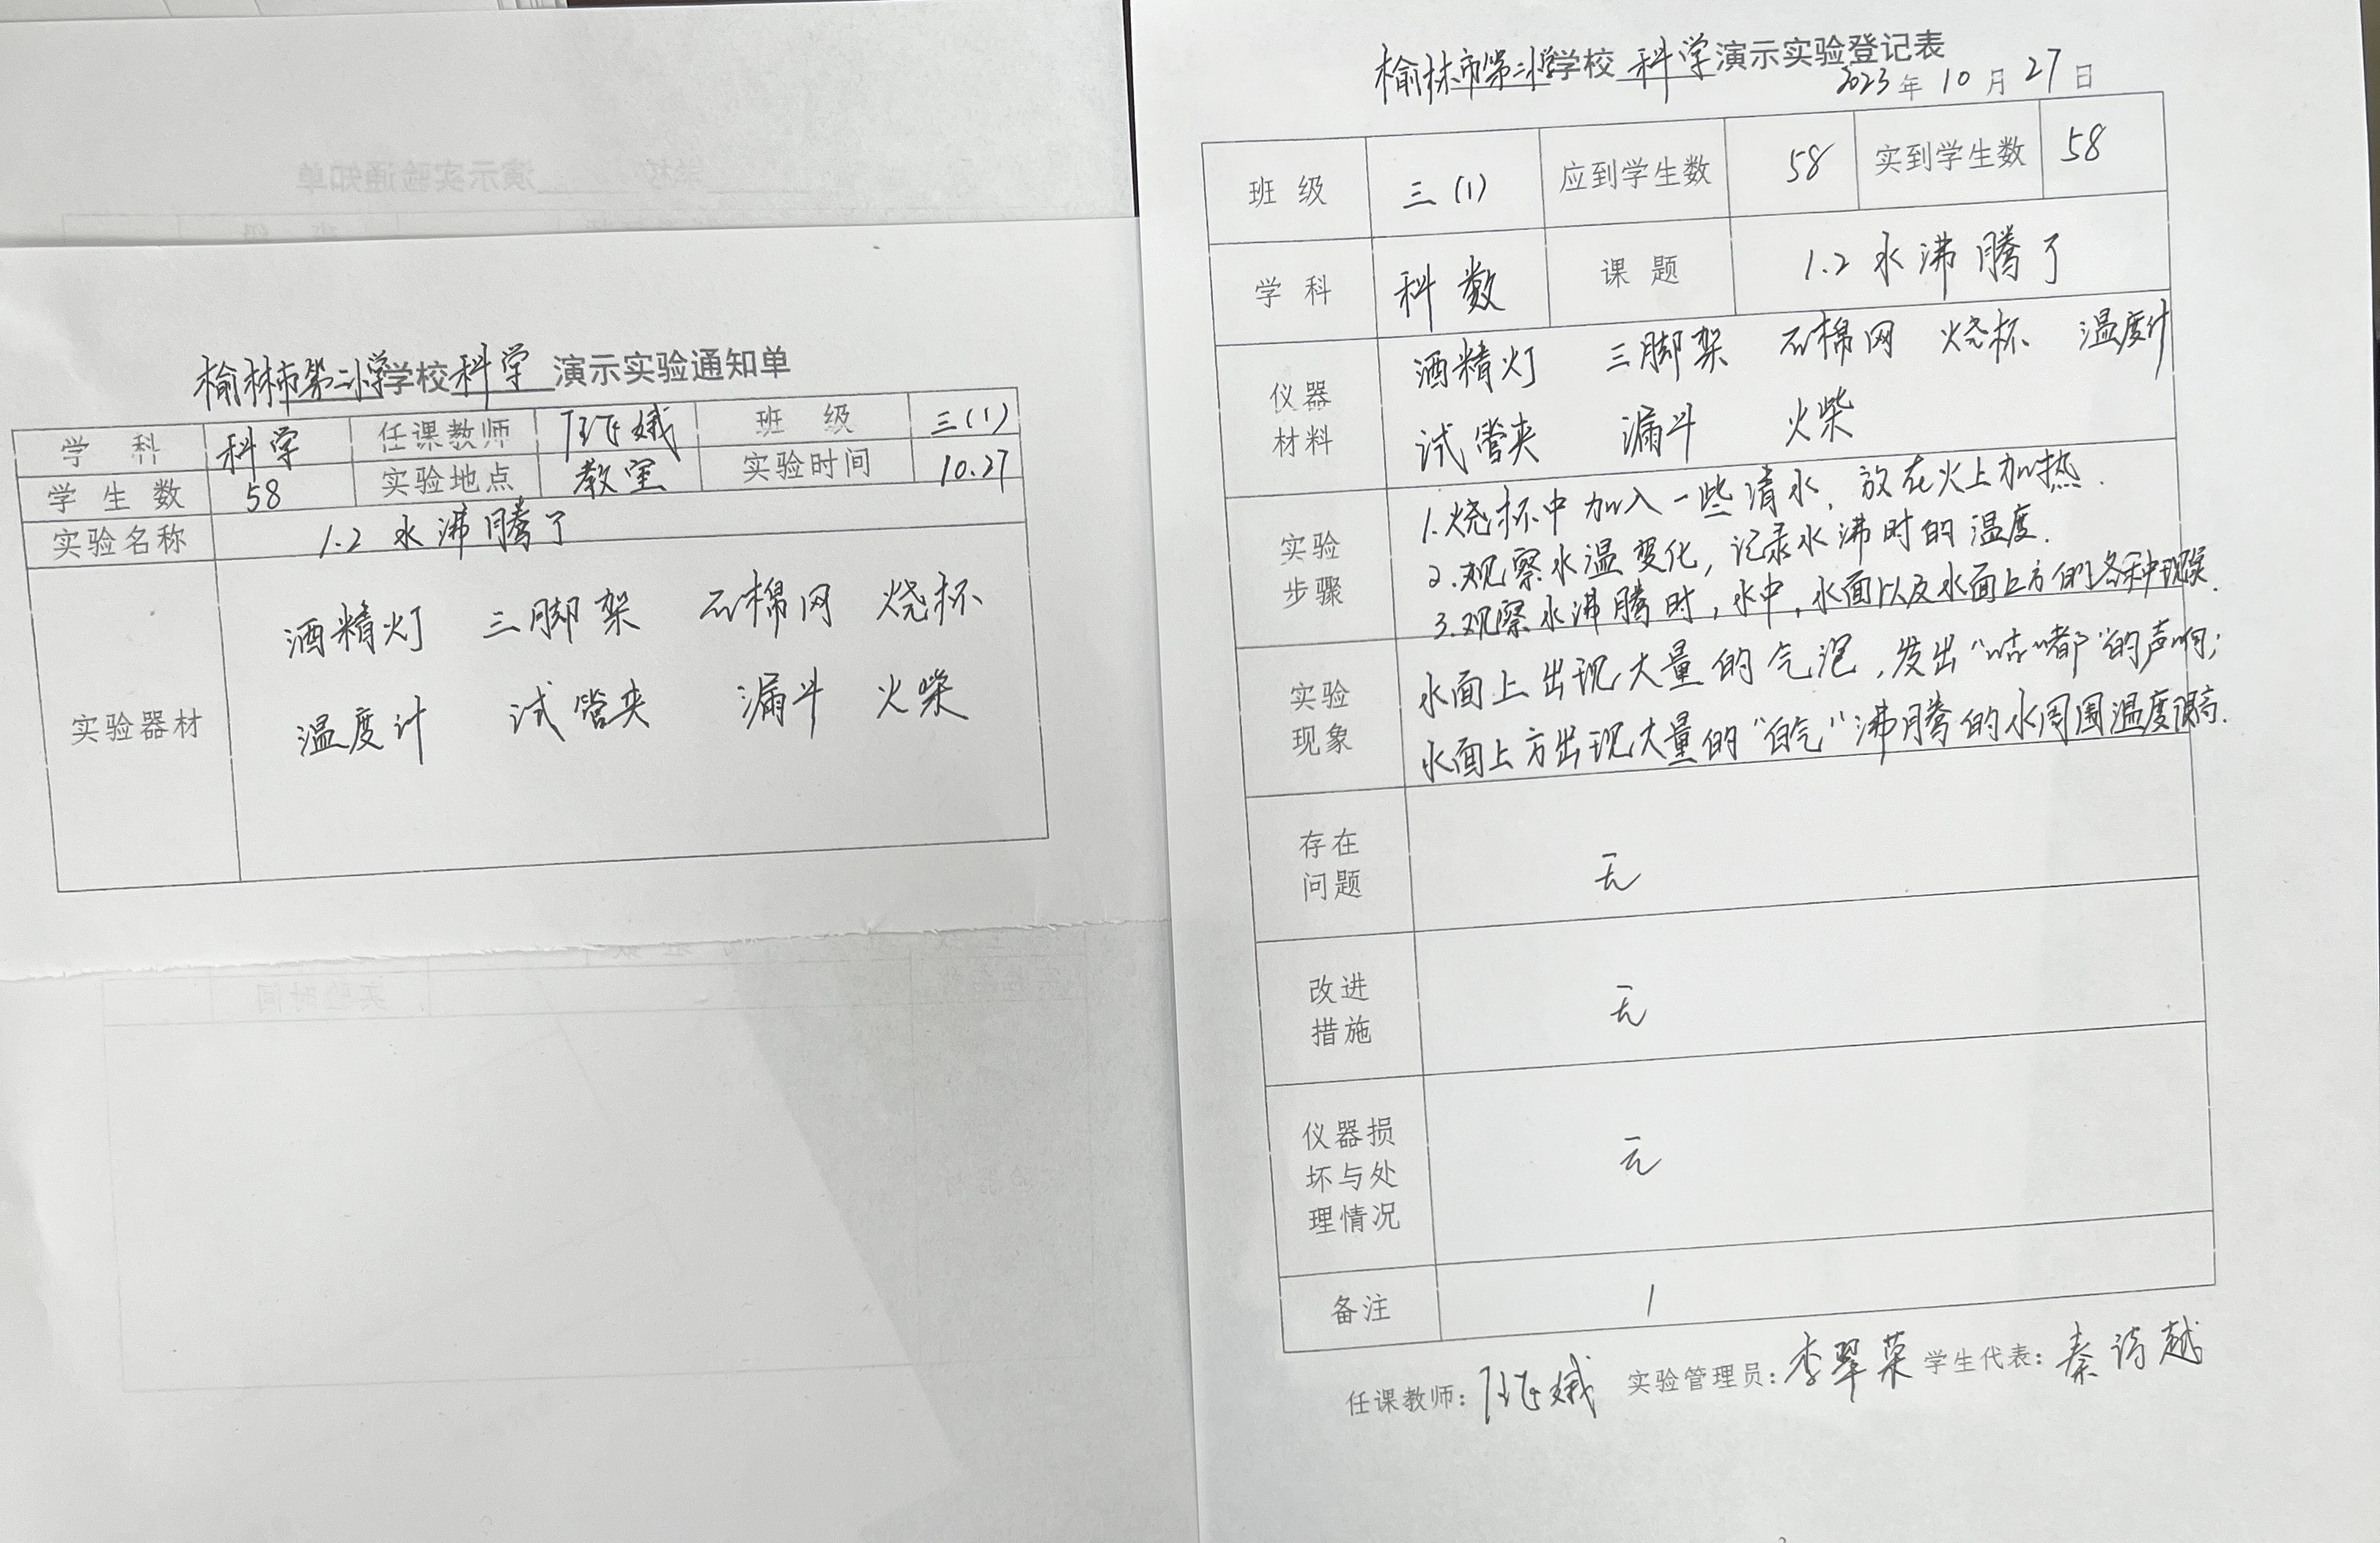 榆林市第二小学学校科学演示实验通知单
学科 科学 任课教师 班级 三(1)
学生数 58 实验地点 教室 实验时间 10.27
实验名称 1.2 水沸腾了
实验器材
酒精灯 三脚架 石棉网 烧杯
温度计 试管夹 漏斗 火柴
榆林市第二小学学校科学演示实验登记表
2023年10月27日
班级 三(1) 应到学生数 58 实到学生数 58
学科 科数 课题 1.2 水沸腾了
仪器材料
酒精灯 三脚架 石棉网 烧杯 温度计
试管夹 漏斗 火柴
实验步骤
1.烧杯中加入一些清水,放在火上加热.
2.观察水温变化,记录水沸时的温度.
3.观察水沸腾时,水中,水面以及水面上方的各种现象.
实验现象
水面上出现大量的气泡,发出“咕嘟”的声响;
水面上方出现大量的“白气”沸腾的水周围温度很高.
存在问题 无
改进措施 无
仪器损坏与处理情况 无
备注 /
任课教师: 实验管理员:李翠荣 学生代表:秦诗越
演示实验通知单
学校
班 级
实验时间